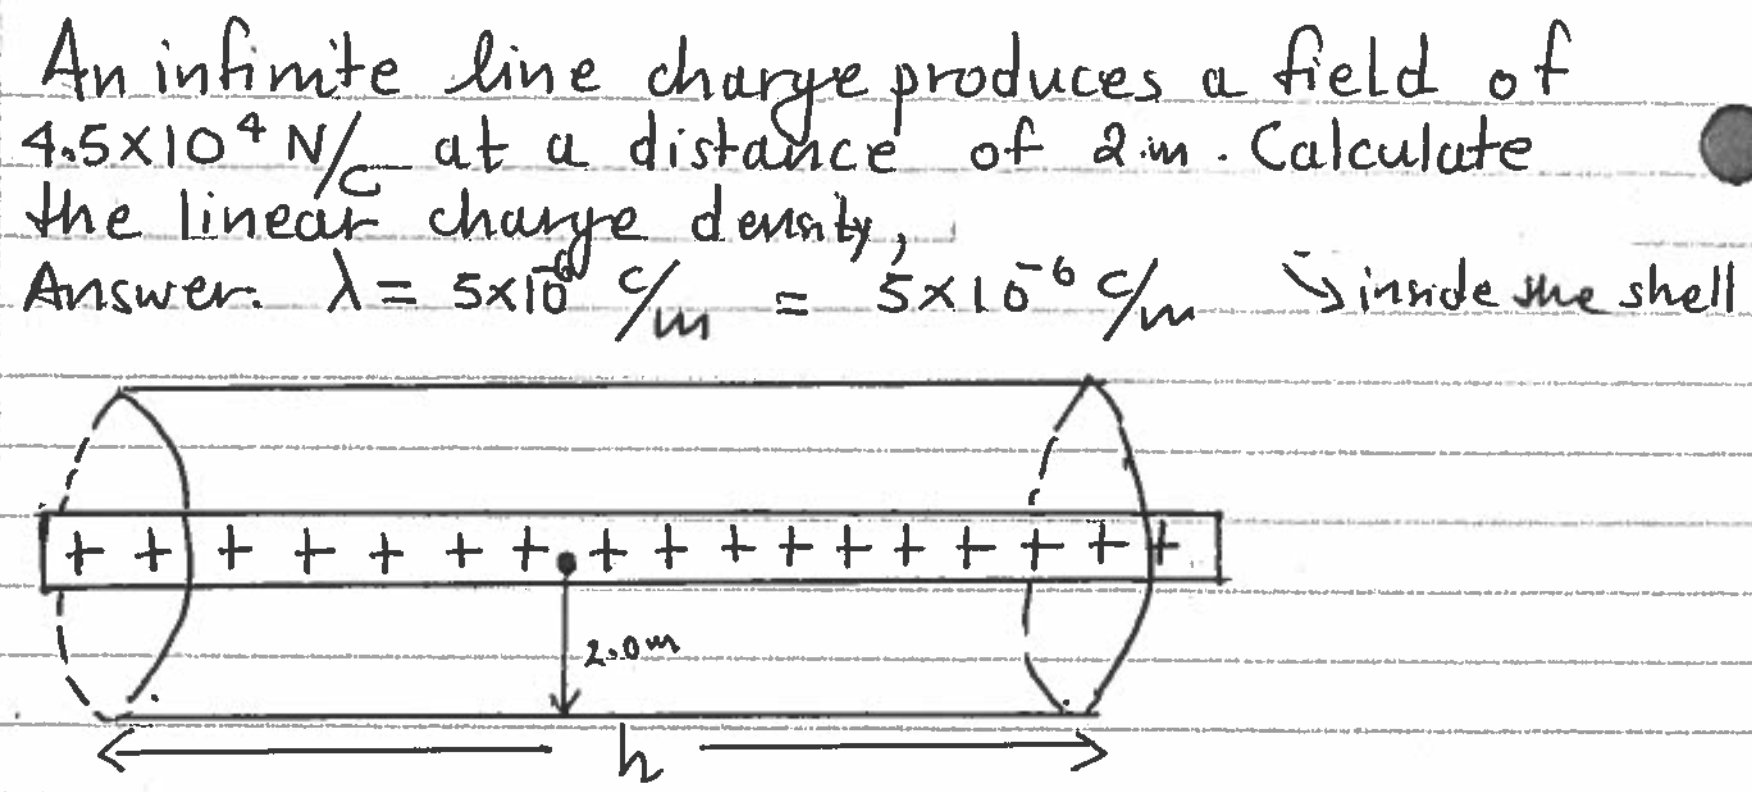 An infinite line charge produces a field of
4.5×10⁴ N/C at a distance of 2 m. Calculate
the linear charge density,
Answer. λ = 5×10⁻⁶ C/m = 5×10⁻⁶ C/m ↳ inside the shell
+ + + + + + + + + + + + + + + + +
2.0m
h